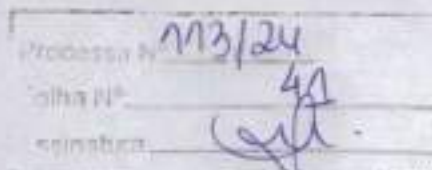 Processo Nº 113/24
Folha Nº 41
Assinatura